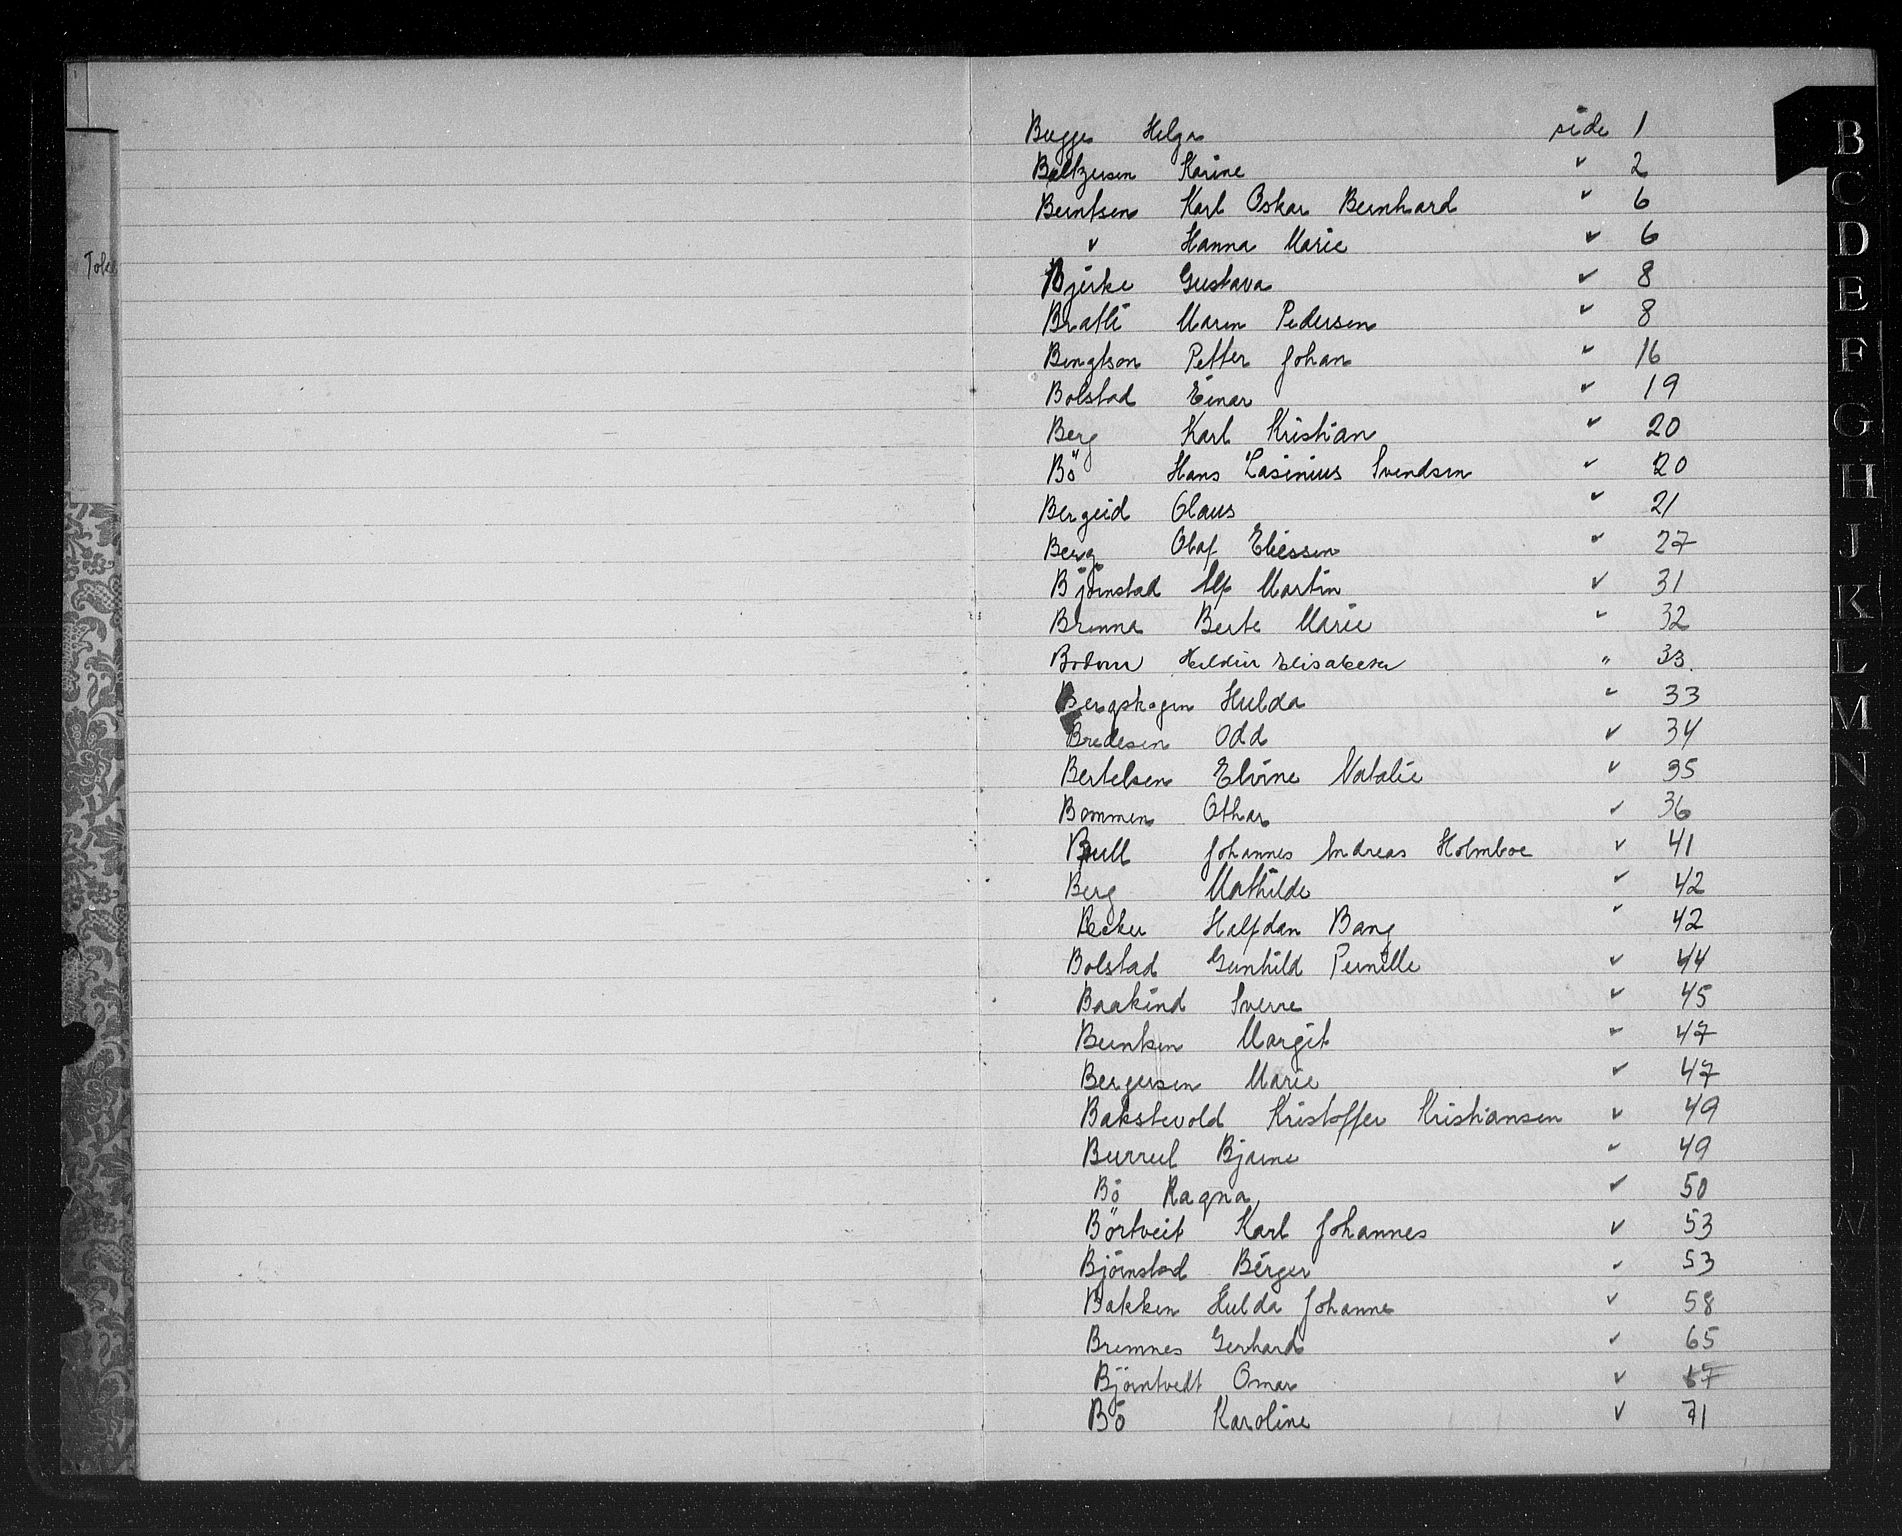 Bugge Helga side 1
Baltzersen Karine " 2
Berntsen Karl Oskar Bernhard " 6
" Hanna Marie " 6
Bjerke Gustava " 8
Bratli Maren Pedersen " 8
Bengtson Petter Johan " 16
Bolstad Einar " 19
Berg Karl Kristian " 20
Bö Hans Lasinius Svendsen " 20
Bergeid Olaus " 21
Berg Olaf Eliessen " 27
Björnstad Alf Martin " 31
Brenna Berte Marie " 32
Elisabeth " 33.
Bergskogen Hulda " 33
Bredesen Odd " 34
Bertelsen Elvine Natalie " 35
Bommen Othar " 36
Bull Johannes Andreas Holmboe " 41
Berg Mathilde " 42
Becker Halfdan Bang " 42
Bolstad Gunhild Pernille " 44
Baakind Sverre " 45
Berntsen Margit " 47
Bergersen Marie " 47
Bakstevold Kristoffer Kristiansen " 49
Burrul Bjarne " 49
Bö Ragna " 50
Börtveit Karl Johannes " 53
Björnstad Birger " 53
Bakken Hulda Johanne " 58
Bremnes Gerhard " 65
Björntvedt Omar " 67
Bö Karoline " 71
B
C
D
E
F
G
H
J
K
L
M
N
O
P
R
S
T